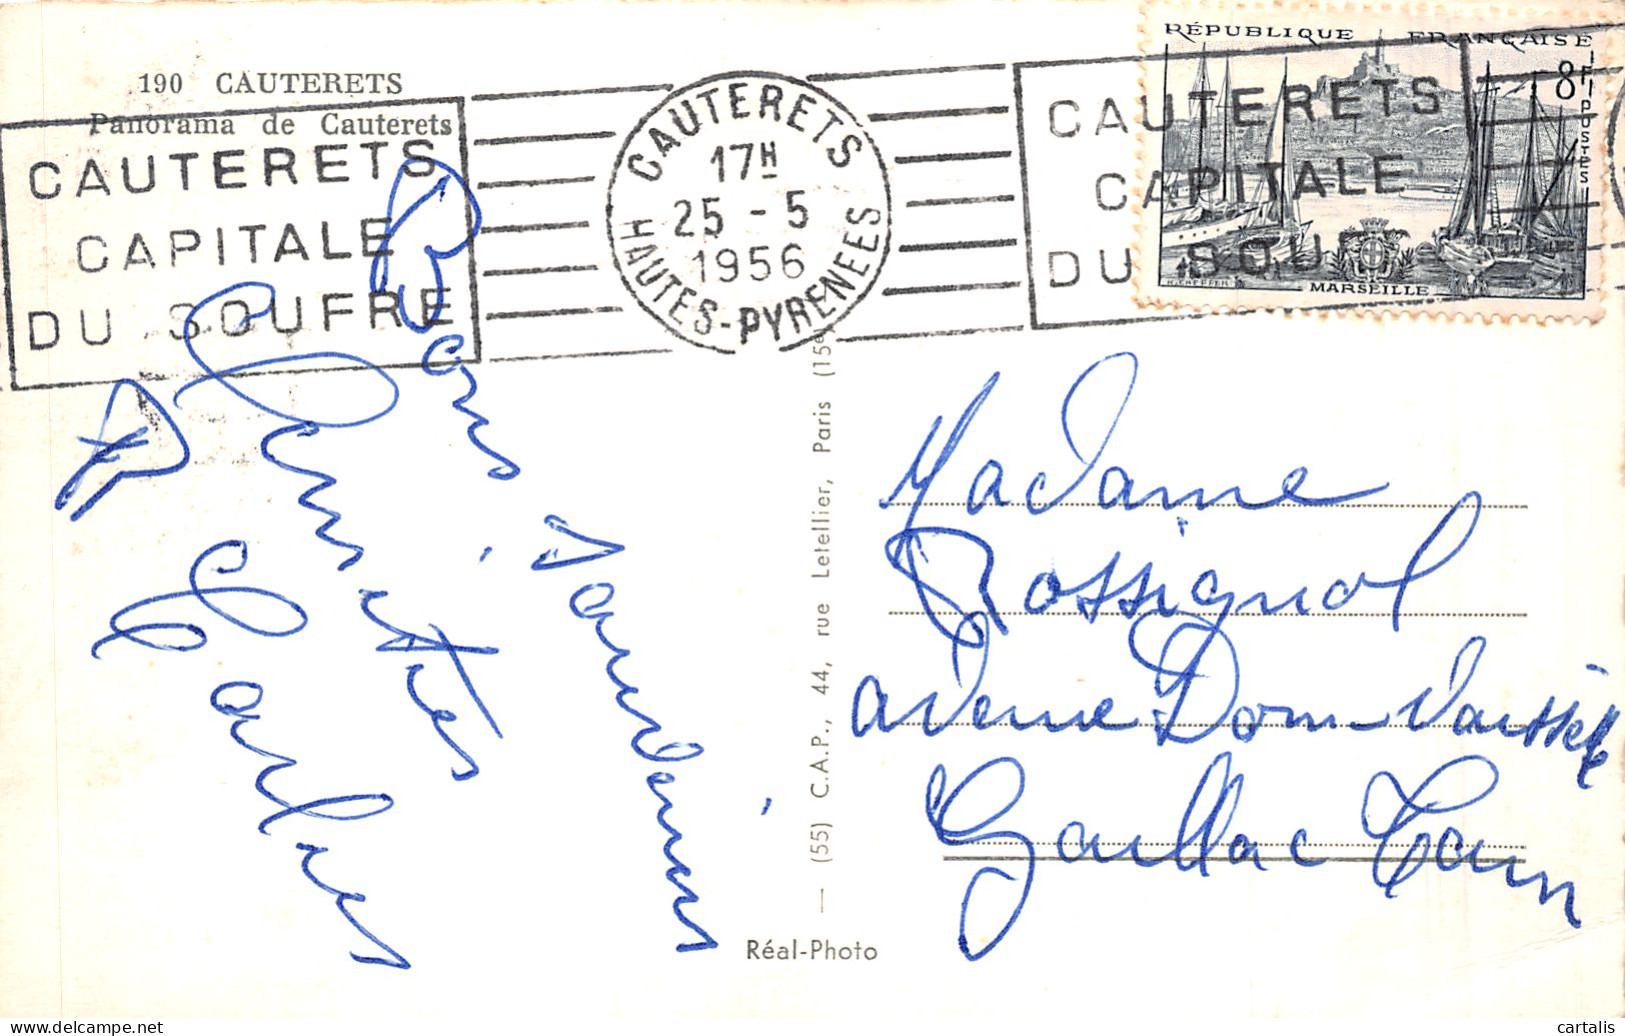 190 CAUTERETS
Panorama de Cauterets
CAUTERETS
CAPITALE
DU SOUFRE
CAUTERETS
17H
25 - 5
1956
HAUTES-PYRENEES
CAUTERETS
CAPITALE
DU SOU
RÉPUBLIQUE FRANÇAISE
8F
POSTES
MARSEILLE
Bons
Souvenirs
Amitiés
Madame
Rossignol
avenue Dom Vaissette
Gaillac Tarn
(55) C.A.P., 44, rue Letellier, Paris (15e
Réal-Photo
cartalis
www.delcampe.net